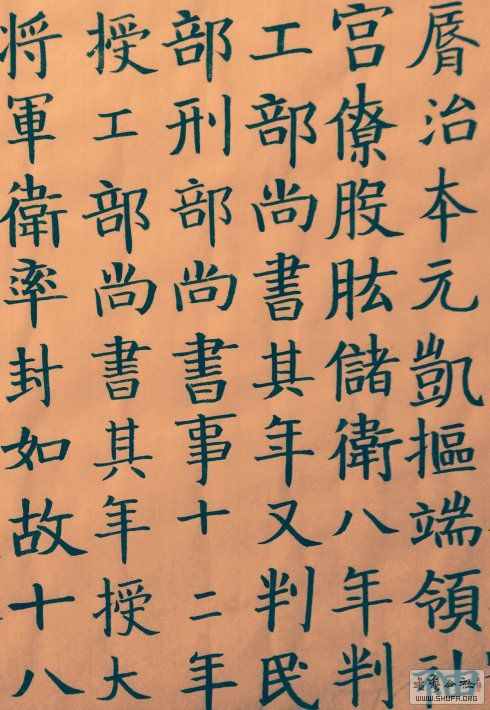 脣治本元凱摳端領
宫僚股肱儲衛八年判
工部尚書其年又判民
部刑部尚書事十二年
授工部尚書其年授大
将軍衛率封如故十八
WWW.SHUFA.ORG